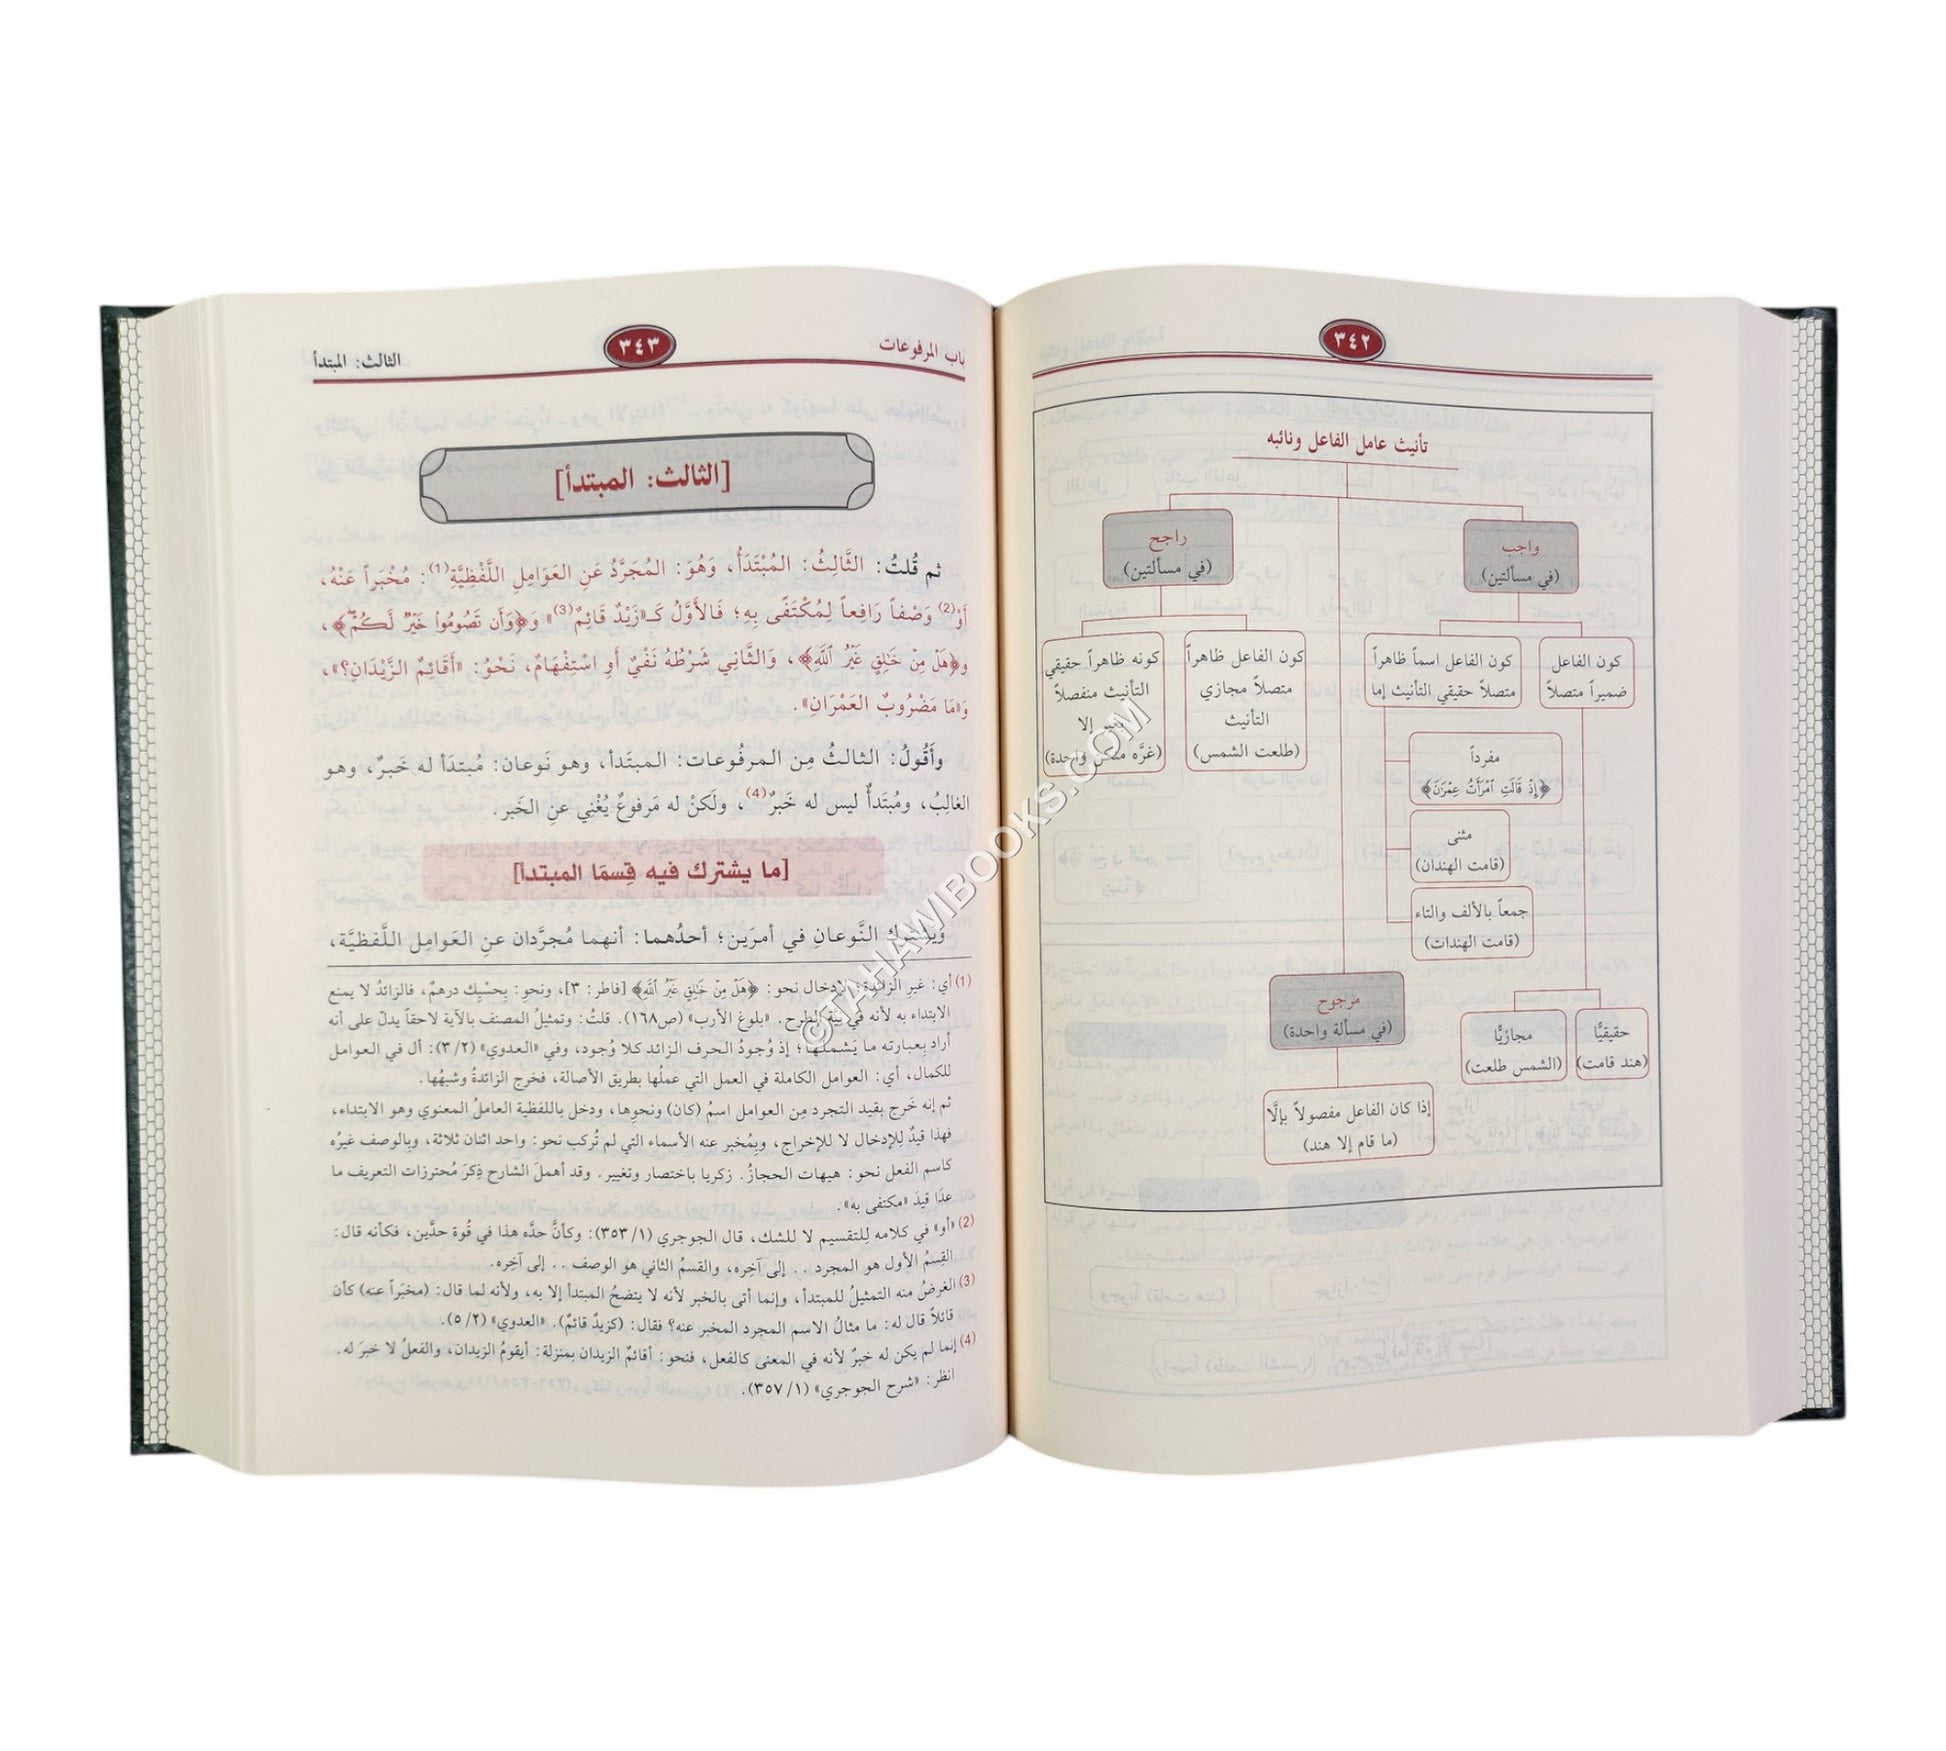 ٣٤٢
تأنيث عامل الفاعل ونائبه
واجب
(في مسألتين)
راجح
(في مسألتين)
كون الفاعل
ضميراً متصلاً
كون الفاعل اسماً ظاهراً
متصلاً حقيقي التأنيث إما
كون الفاعل ظاهراً
متصلاً مجازي
التأنيث
(طلعت الشمس)
كونه ظاهراً حقيقي
التأنيث منفصلاً
بغير إلا
(غرَّه منكن واحدة)
مفرداً
﴿إِذْ قَالَتِ ٱمْرَأَتُ عِمْرَٰنَ﴾
مثنى
(قامت الهندان)
جمعاً بالألف والتاء
(قامت الهندات)
حقيقيًّا
(هند قامت)
مجازيًّا
(الشمس طلعت)
مرجوح
(في مسألة واحدة)
إذا كان الفاعل مفصولاً بإلَّا
(ما قام إلا هند)
باب المرفوعات
٣٤٣
الثالث: المبتدأ
[الثالث: المبتدأ]
ثم قُلتُ: الثَّالِثُ: المُبْتَدَأُ، وَهُوَ: المُجَرَّدُ عَنِ العَوَامِلِ اللَّفْظِيَّةِ(1): مُخْبَراً عَنْهُ،
أَوْ(2) وَصْفاً رَافِعاً لِمُكْتَفًى بِهِ؛ فَالأَوَّلُ كَـ«زَيْدٌ قَائِمٌ(3)» وَ﴿وَأَن تَصُومُوا۟ خَيْرٌ لَّكُمْ﴾،
و﴿هَلْ مِنْ خَٰلِقٍ غَيْرُ ٱللَّهِ﴾، وَالثَّانِي شَرْطُهُ نَفْيٌ أَوِ اسْتِفْهَامٌ، نَحْوُ: «أَقَائِمٌ الزَّيْدَانِ؟»،
وَ«مَا مَضْرُوبٌ العَمْرَانِ».
وأَقُولُ: الثالثُ مِن المرفُوعات: المبتَدأ، وهو نَوعان: مُبتدَأ له خَبرٌ، وهو
الغالِبُ، ومُبتَدأٌ ليس له خَبرٌ(4)، ولَكنْ له مَرفوعٌ يُغْنِي عنِ الخَبر.
[ما يشترك فيه قِسمَا المبتدأ]
ويشترك النَّوعانِ في أمرَين؛ أحدُهما: أنهما مُجرَّدان عنِ العَوامِل اللَّفظيَّة،
(1) أي: غيرِ الزائدة؛ لإدخال نحو: ﴿هَلْ مِنْ خَٰلِقٍ غَيْرُ ٱللَّهِ﴾ [فاطر: ٣]، ونحوِ: بِحسْبِك درهمٌ، فالزائدُ لا يمنع
الابتداء به لأنه في نية الطرح. «بلوغ الأرب» (ص١٦٨). قلتُ: وتمثيلُ المصنف بالآية لاحقاً يدلّ على أنه
أراد بِعبارته ما يَشملُها؛ إذ وُجودُ الحرف الزائد كلا وُجود، وفي «العدوي» (٣/٢): أل في العوامل
للكمال، أي: العوامل الكاملة في العمل التي عملُها بطريق الأصالة، فخرج الزائدةُ وشبهُها.
ثم إنه خَرج بقيد التجرد مِن العوامل اسمُ (كان) ونحوِها، ودخل باللفظية العاملُ المعنوي وهو الابتداء،
فهذا قيدٌ لِلإدخال لا للإخراج، وبِمُخبر عنه الأسماء التي لم تُركب نحو: واحد اثنان ثلاثة، وبِالوصف غيرُه
كاسم الفعل نحو: هيهات الحجازُ. زكريا باختصار وتغيير. وقد أهملَ الشارح ذِكرَ مُحترزات التعريف ما
عدَا قيدَ «مكتفى به».
(2) «أو» في كلامه لِلتقسيم لا للشك، قال الجوجري (٣٥٣/١): وكأنَّ حدَّه هذا في قُوة حدَّين، فكأنه قال:
القِسمُ الأول هو المجرد .. إلى آخِره، والقسمُ الثاني هو الوصف .. إلى آخِره.
(3) الغرضُ منه التمثيلُ للمبتدأ، وإنما أتى بالخبر لأنه لا يتضحُ المبتدأ إلا به، ولأنه لما قال: (مخبَراً عنه) كأن
قائلاً قال له: ما مثالُ الاسم المجرد المخبر عنه؟ فقال: (كزيدٌ قائمٌ). «العدوي» (٥/٢).
(4) إنما لم يكن له خبرٌ لأنه في المعنى كالفعل، فنحو: أقائمٌ الزيدان بمنزلة: أيقومُ الزيدان، والفعلُ لا خبرَ له.
انظر: «شرح الجوجري» (٣٥٧/١).
©TAHAWIBOOKS.COM